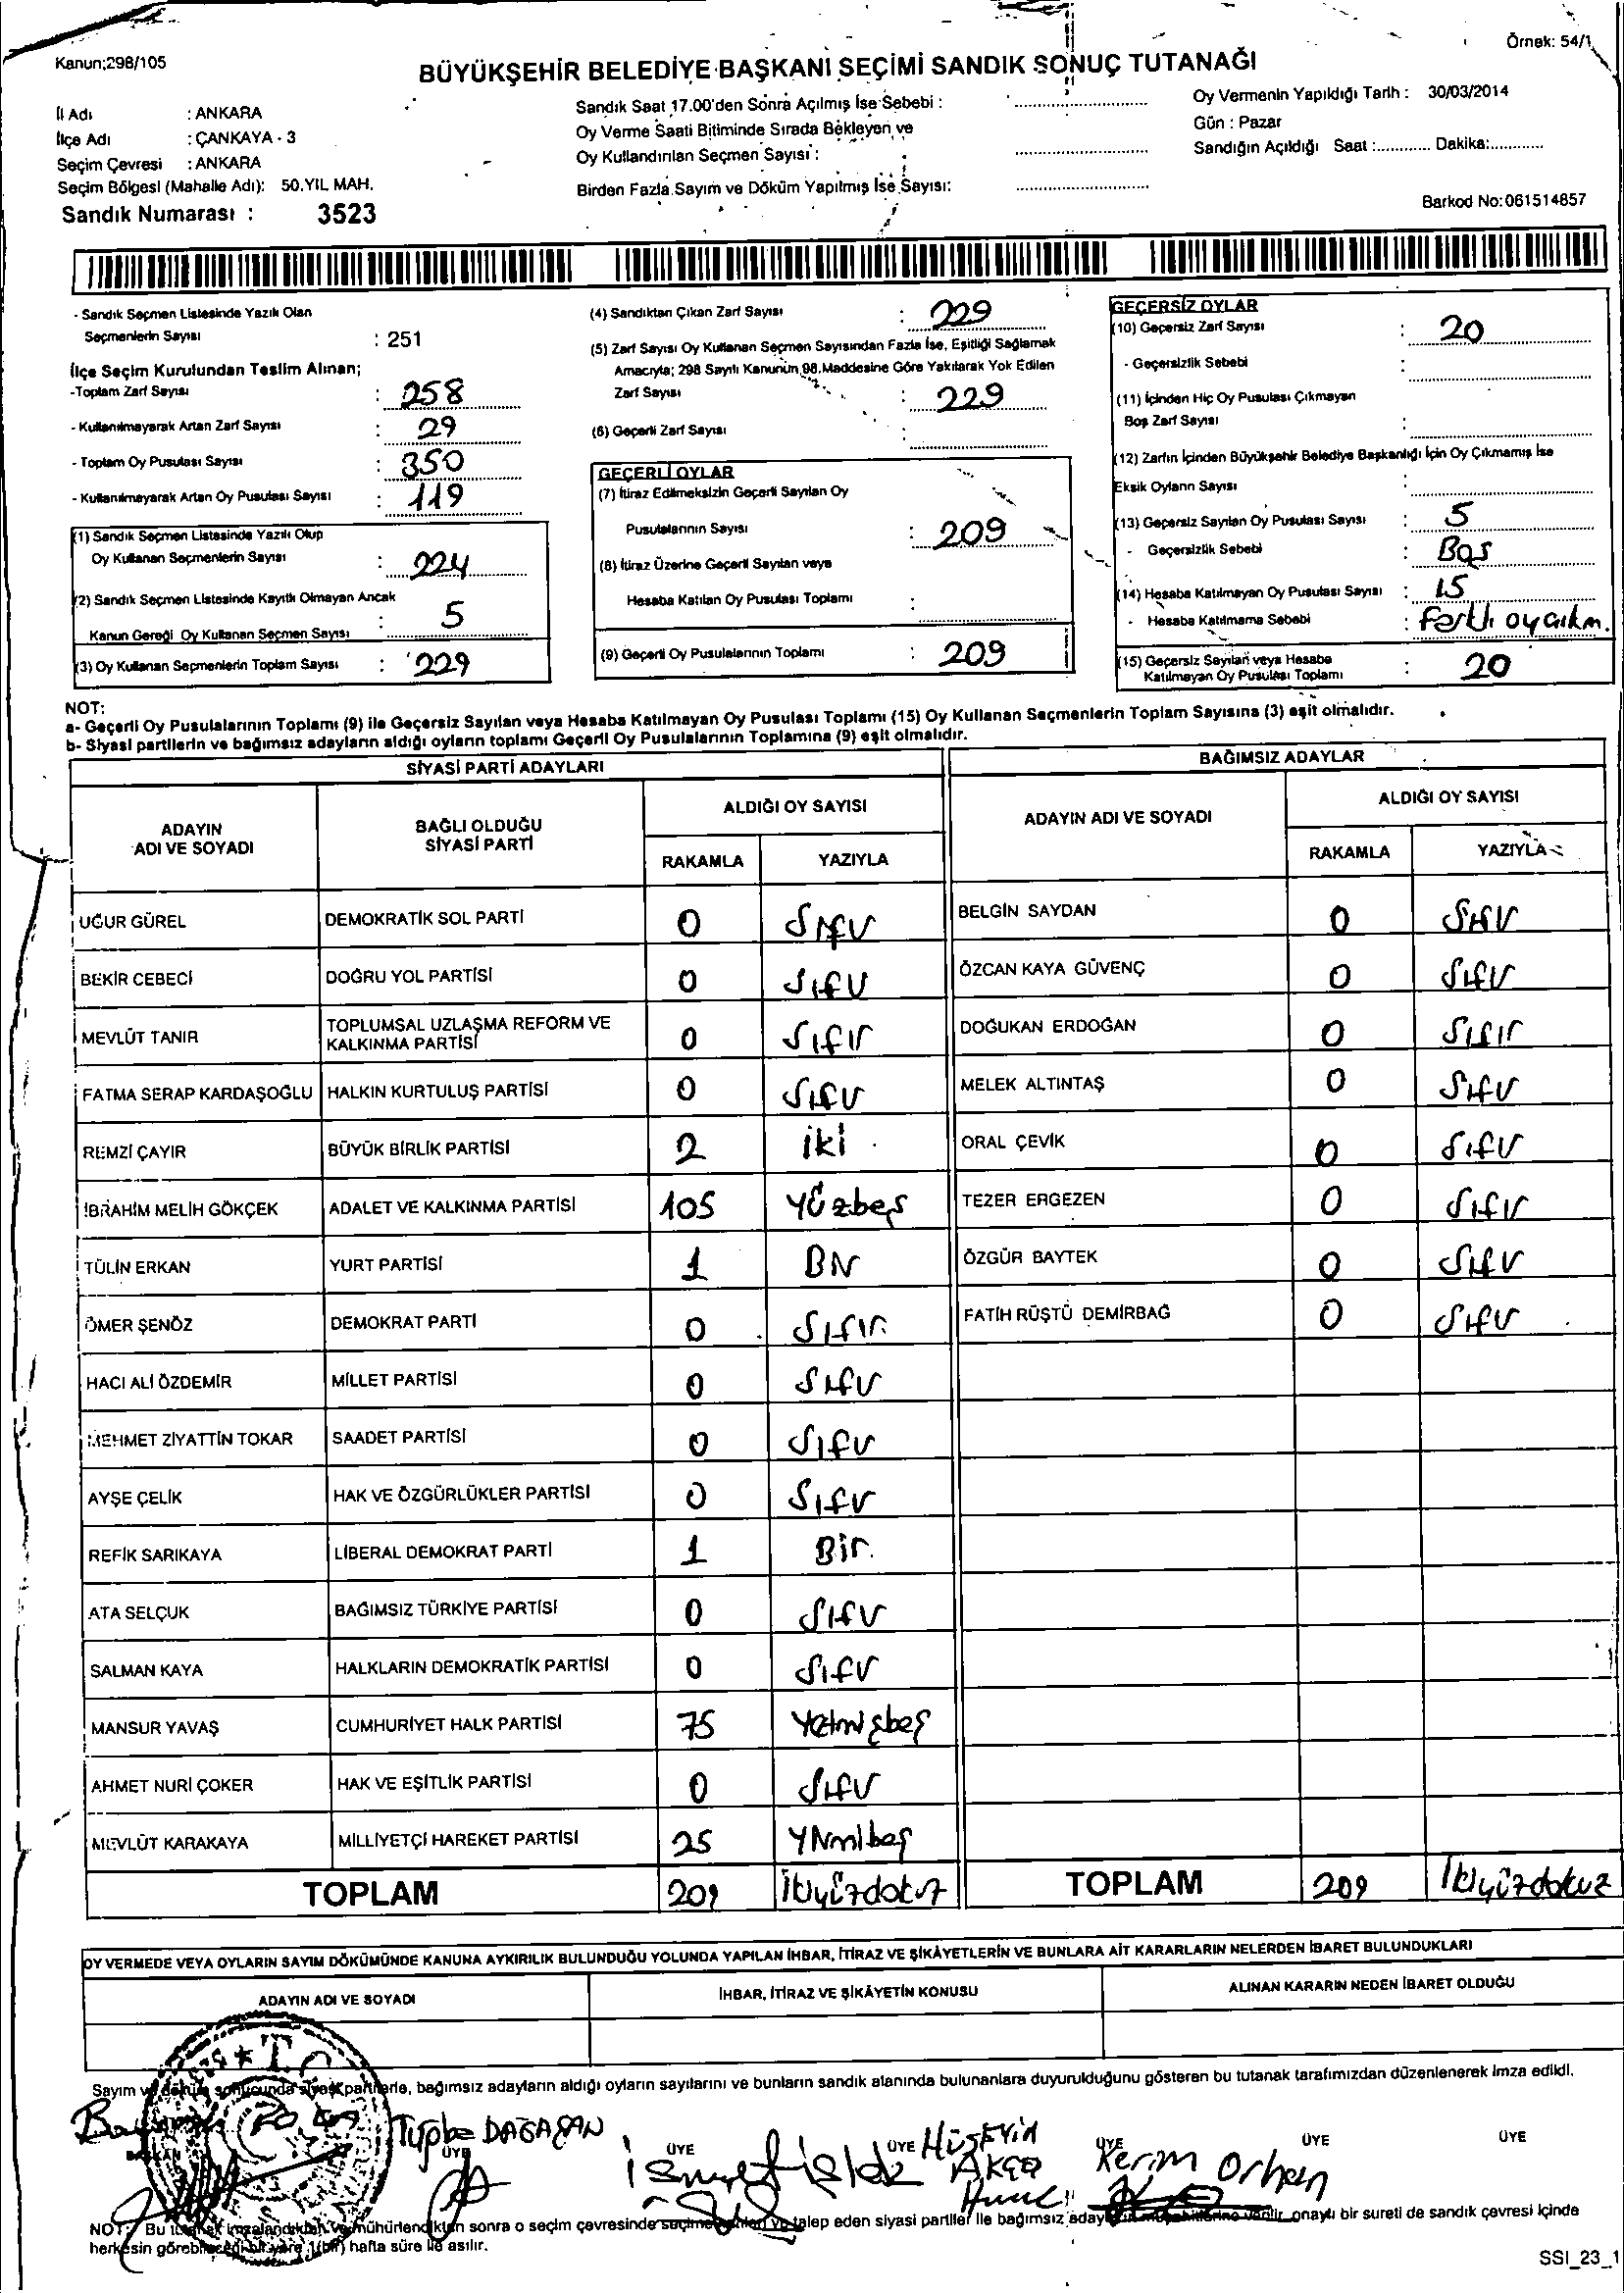 Örnek: 54/1
Kanun;298/105
BÜYÜKŞEHİR BELEDİYE BAŞKANI SEÇİMİ SANDIK SONUÇ TUTANAĞI
İl Adı : ANKARA
İlçe Adı : ÇANKAYA - 3
Seçim Çevresi : ANKARA
Seçim Bölgesi (Mahalle Adı): 50.YIL MAH.
Sandık Numarası : 3523
Sandık Saat 17.00'den Sonra Açılmış İse Sebebi :
Oy Verme Saati Bitiminde Sırada Bekleyen ve
Oy Kullandırılan Seçmen Sayısı :
Birden Fazla Sayım ve Döküm Yapılmış İse Sayısı:
Oy Vermenin Yapıldığı Tarih : 30/03/2014
Gün : Pazar
Sandığın Açıldığı Saat :............ Dakika:............
Barkod No:061514857
- Sandık Seçmen Listesinde Yazılı Olan
Seçmenlerin Sayısı : 251
İlçe Seçim Kurulundan Teslim Alınan;
-Toplam Zarf Sayısı : 258
- Kullanılmayarak Artan Zarf Sayısı : 29
- Toplam Oy Pusulası Sayısı : 350
- Kullanılmayarak Artan Oy Pusulası Sayısı : 119
(1) Sandık Seçmen Listesinde Yazılı Olup
Oy Kullanan Seçmenlerin Sayısı : 224
(2) Sandık Seçmen Listesinde Kayıtlı Olmayan Ancak
Kanun Gereği Oy Kullanan Seçmen Sayısı : 5
(3) Oy Kullanan Seçmenlerin Toplam Sayısı : 229
(4) Sandıktan Çıkan Zarf Sayısı : 229
(5) Zarf Sayısı Oy Kullanan Seçmen Sayısından Fazla İse, Eşitliği Sağlamak
Amacıyla; 298 Sayılı Kanunun 98.Maddesine Göre Yakılarak Yok Edilen
Zarf Sayısı : 229
(6) Geçerli Zarf Sayısı :
GEÇERLİ OYLAR
(7) İtiraz Edilmeksizin Geçerli Sayılan Oy
Pusulalarının Sayısı : 209
(8) İtiraz Üzerine Geçerli Sayılan veya
Hesaba Katılan Oy Pusulası Toplamı :
(9) Geçerli Oy Pusulalarının Toplamı : 209
GEÇERSİZ OYLAR
(10) Geçersiz Zarf Sayısı : 20
- Geçersizlik Sebebi :
(11) İçinden Hiç Oy Pusulası Çıkmayan
Boş Zarf Sayısı :
(12) Zarfın İçinden Büyükşehir Belediye Başkanlığı İçin Oy Çıkmamış İse
Eksik Oyların Sayısı :
(13) Geçersiz Sayılan Oy Pusulası Sayısı : 5
- Geçersizlik Sebebi : Boş
(14) Hesaba Katılmayan Oy Pusulası Sayısı : 15
- Hesaba Katılmama Sebebi : Farklı oy çıkm.
(15) Geçersiz Sayılan veya Hesaba
Katılmayan Oy Pusulası Toplamı : 20
NOT:
a- Geçerli Oy Pusulalarının Toplamı (9) ile Geçersiz Sayılan veya Hesaba Katılmayan Oy Pusulası Toplamı (15) Oy Kullanan Seçmenlerin Toplam Sayısına (3) eşit olmalıdır.
b- Siyasi partilerin ve bağımsız adayların aldığı oyların toplamı Geçerli Oy Pusulalarının Toplamına (9) eşit olmalıdır.
SİYASİ PARTİ ADAYLARI
ADAYIN ADI VE SOYADI BAĞLI OLDUĞU SİYASİ PARTİ ALDIĞI OY SAYISI
RAKAMLA YAZIYLA
UĞUR GÜREL DEMOKRATİK SOL PARTİ 0 Sıfır
BEKİR CEBECİ DOĞRU YOL PARTİSİ 0 Sıfır
MEVLÜT TANIR TOPLUMSAL UZLAŞMA REFORM VE KALKINMA PARTİSİ 0 Sıfır
FATMA SERAP KARDAŞOĞLU HALKIN KURTULUŞ PARTİSİ 0 Sıfır
REMZİ ÇAYIR BÜYÜK BİRLİK PARTİSİ 2 iki
İBRAHİM MELİH GÖKÇEK ADALET VE KALKINMA PARTİSİ 105 Yüzbeş
TÜLİN ERKAN YURT PARTİSİ 1 Bir
ÖMER ŞENÖZ DEMOKRAT PARTİ 0 Sıfır
HACI ALİ ÖZDEMİR MİLLET PARTİSİ 0 Sıfır
MEHMET ZİYATTİN TOKAR SAADET PARTİSİ 0 Sıfır
AYŞE ÇELİK HAK VE ÖZGÜRLÜKLER PARTİSİ 0 Sıfır
REFİK SARIKAYA LİBERAL DEMOKRAT PARTİ 1 Bir
ATA SELÇUK BAĞIMSIZ TÜRKİYE PARTİSİ 0 Sıfır
SALMAN KAYA HALKLARIN DEMOKRATİK PARTİSİ 0 Sıfır
MANSUR YAVAŞ CUMHURİYET HALK PARTİSİ 75 Yetmişbeş
AHMET NURİ ÇOKER HAK VE EŞİTLİK PARTİSİ 0 Sıfır
MEVLÜT KARAKAYA MİLLİYETÇİ HAREKET PARTİSİ 25 Yirmibeş
TOPLAM 209 İkiyüzdokuz
BAĞIMSIZ ADAYLAR
ADAYIN ADI VE SOYADI ALDIĞI OY SAYISI
RAKAMLA YAZIYLA
BELGİN SAYDAN 0 Sıfır
ÖZCAN KAYA GÜVENÇ 0 Sıfır
DOĞUKAN ERDOĞAN 0 Sıfır
MELEK ALTINTAŞ 0 Sıfır
ORAL ÇEVİK 0 Sıfır
TEZER ERGEZEN 0 Sıfır
ÖZGÜR BAYTEK 0 Sıfır
FATİH RÜŞTÜ DEMİRBAĞ 0 Sıfır
TOPLAM 209 İkiyüzdokuz
OY VERMEDE VEYA OYLARIN SAYIM DÖKÜMÜNDE KANUNA AYKIRILIK BULUNDUĞU YOLUNDA YAPILAN İHBAR, İTİRAZ VE ŞİKÂYETLERİN VE BUNLARA AİT KARARLARIN NELERDEN İBARET BULUNDUKLARI
ADAYIN ADI VE SOYADI İHBAR, İTİRAZ VE ŞİKÂYETİN KONUSU ALINAN KARARIN NEDEN İBARET OLDUĞU
T.C.
Sayım ve döküm sonucunda siyasi partilerle, bağımsız adayların aldığı oyların sayılarını ve bunların sandık alanında bulunanlara duyurulduğunu gösteren bu tutanak tarafımızdan düzenlenerek imza edildi.
ÜYE ÜYE ÜYE ÜYE ÜYE ÜYE
Tuğba DAĞAŞAN
İsmet
HÜSEYİN AKÇA
Kerim Orhan
NOT: Bu tutanak imzalandıktan ve mühürlendikten sonra o seçim çevresinde seçime katılan ve talep eden siyasi partiler ile bağımsız aday verilir, onaylı bir sureti de sandık çevresi içinde
herkesin görebileceği bir yere 1(bir) hafta süre ile asılır.
SSI_23_1